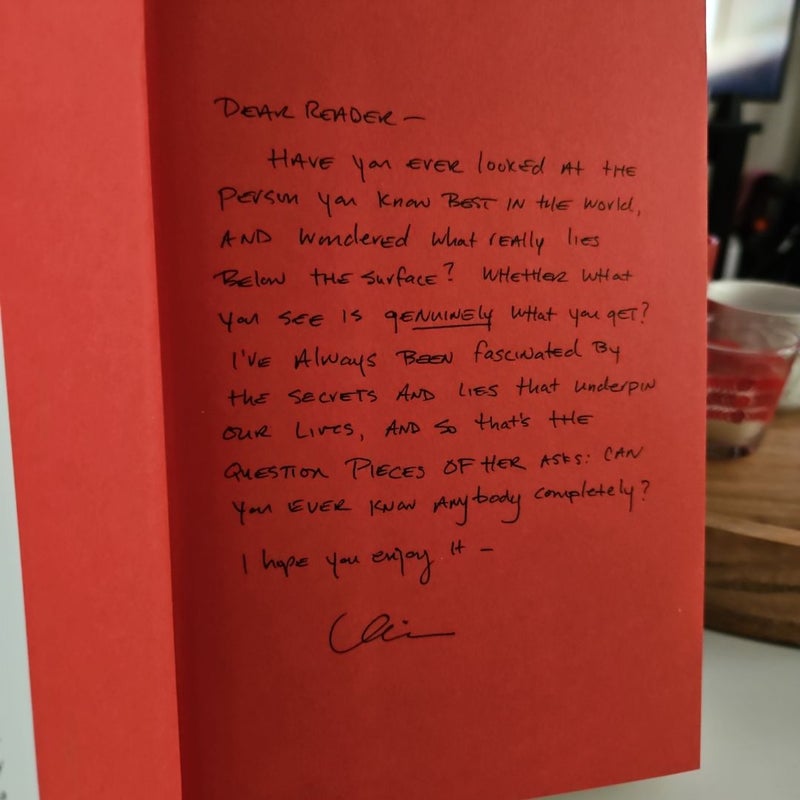 DEAR READER —
HAVE you EVER looked AT THE
Person you know BEST IN the world,
AND wondered what really lies
Below the surface? Whether what
you see is genuinely what you get?
I've Always BEEN fascinated By
the secrets AND lies that underpin
our lives, AND so that's the
question PIECES OF HER asks: CAN
you EVER know Anybody completely?
I hope you enjoy it —